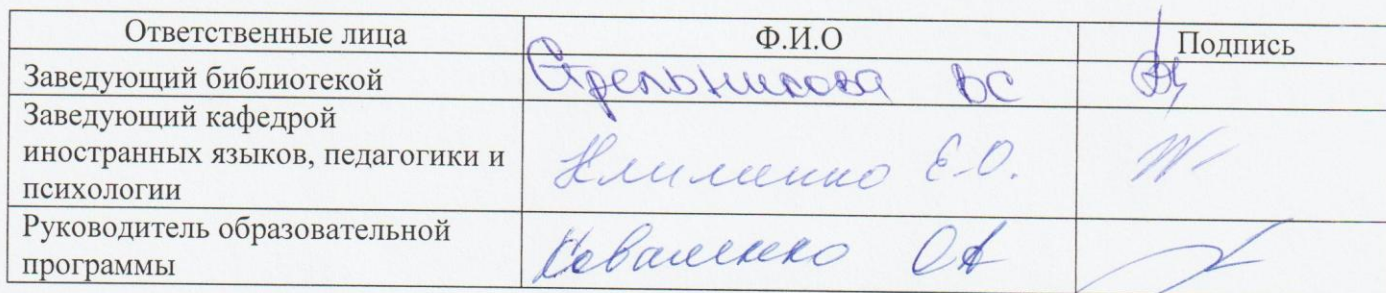 Ответственные лица Ф.И.О Подпись
Заведующий библиотекой Стрельникова ВС
Заведующий кафедрой
иностранных языков, педагогики и
психологии Клименко Е.О.
Руководитель образовательной
программы Коваленко ОА